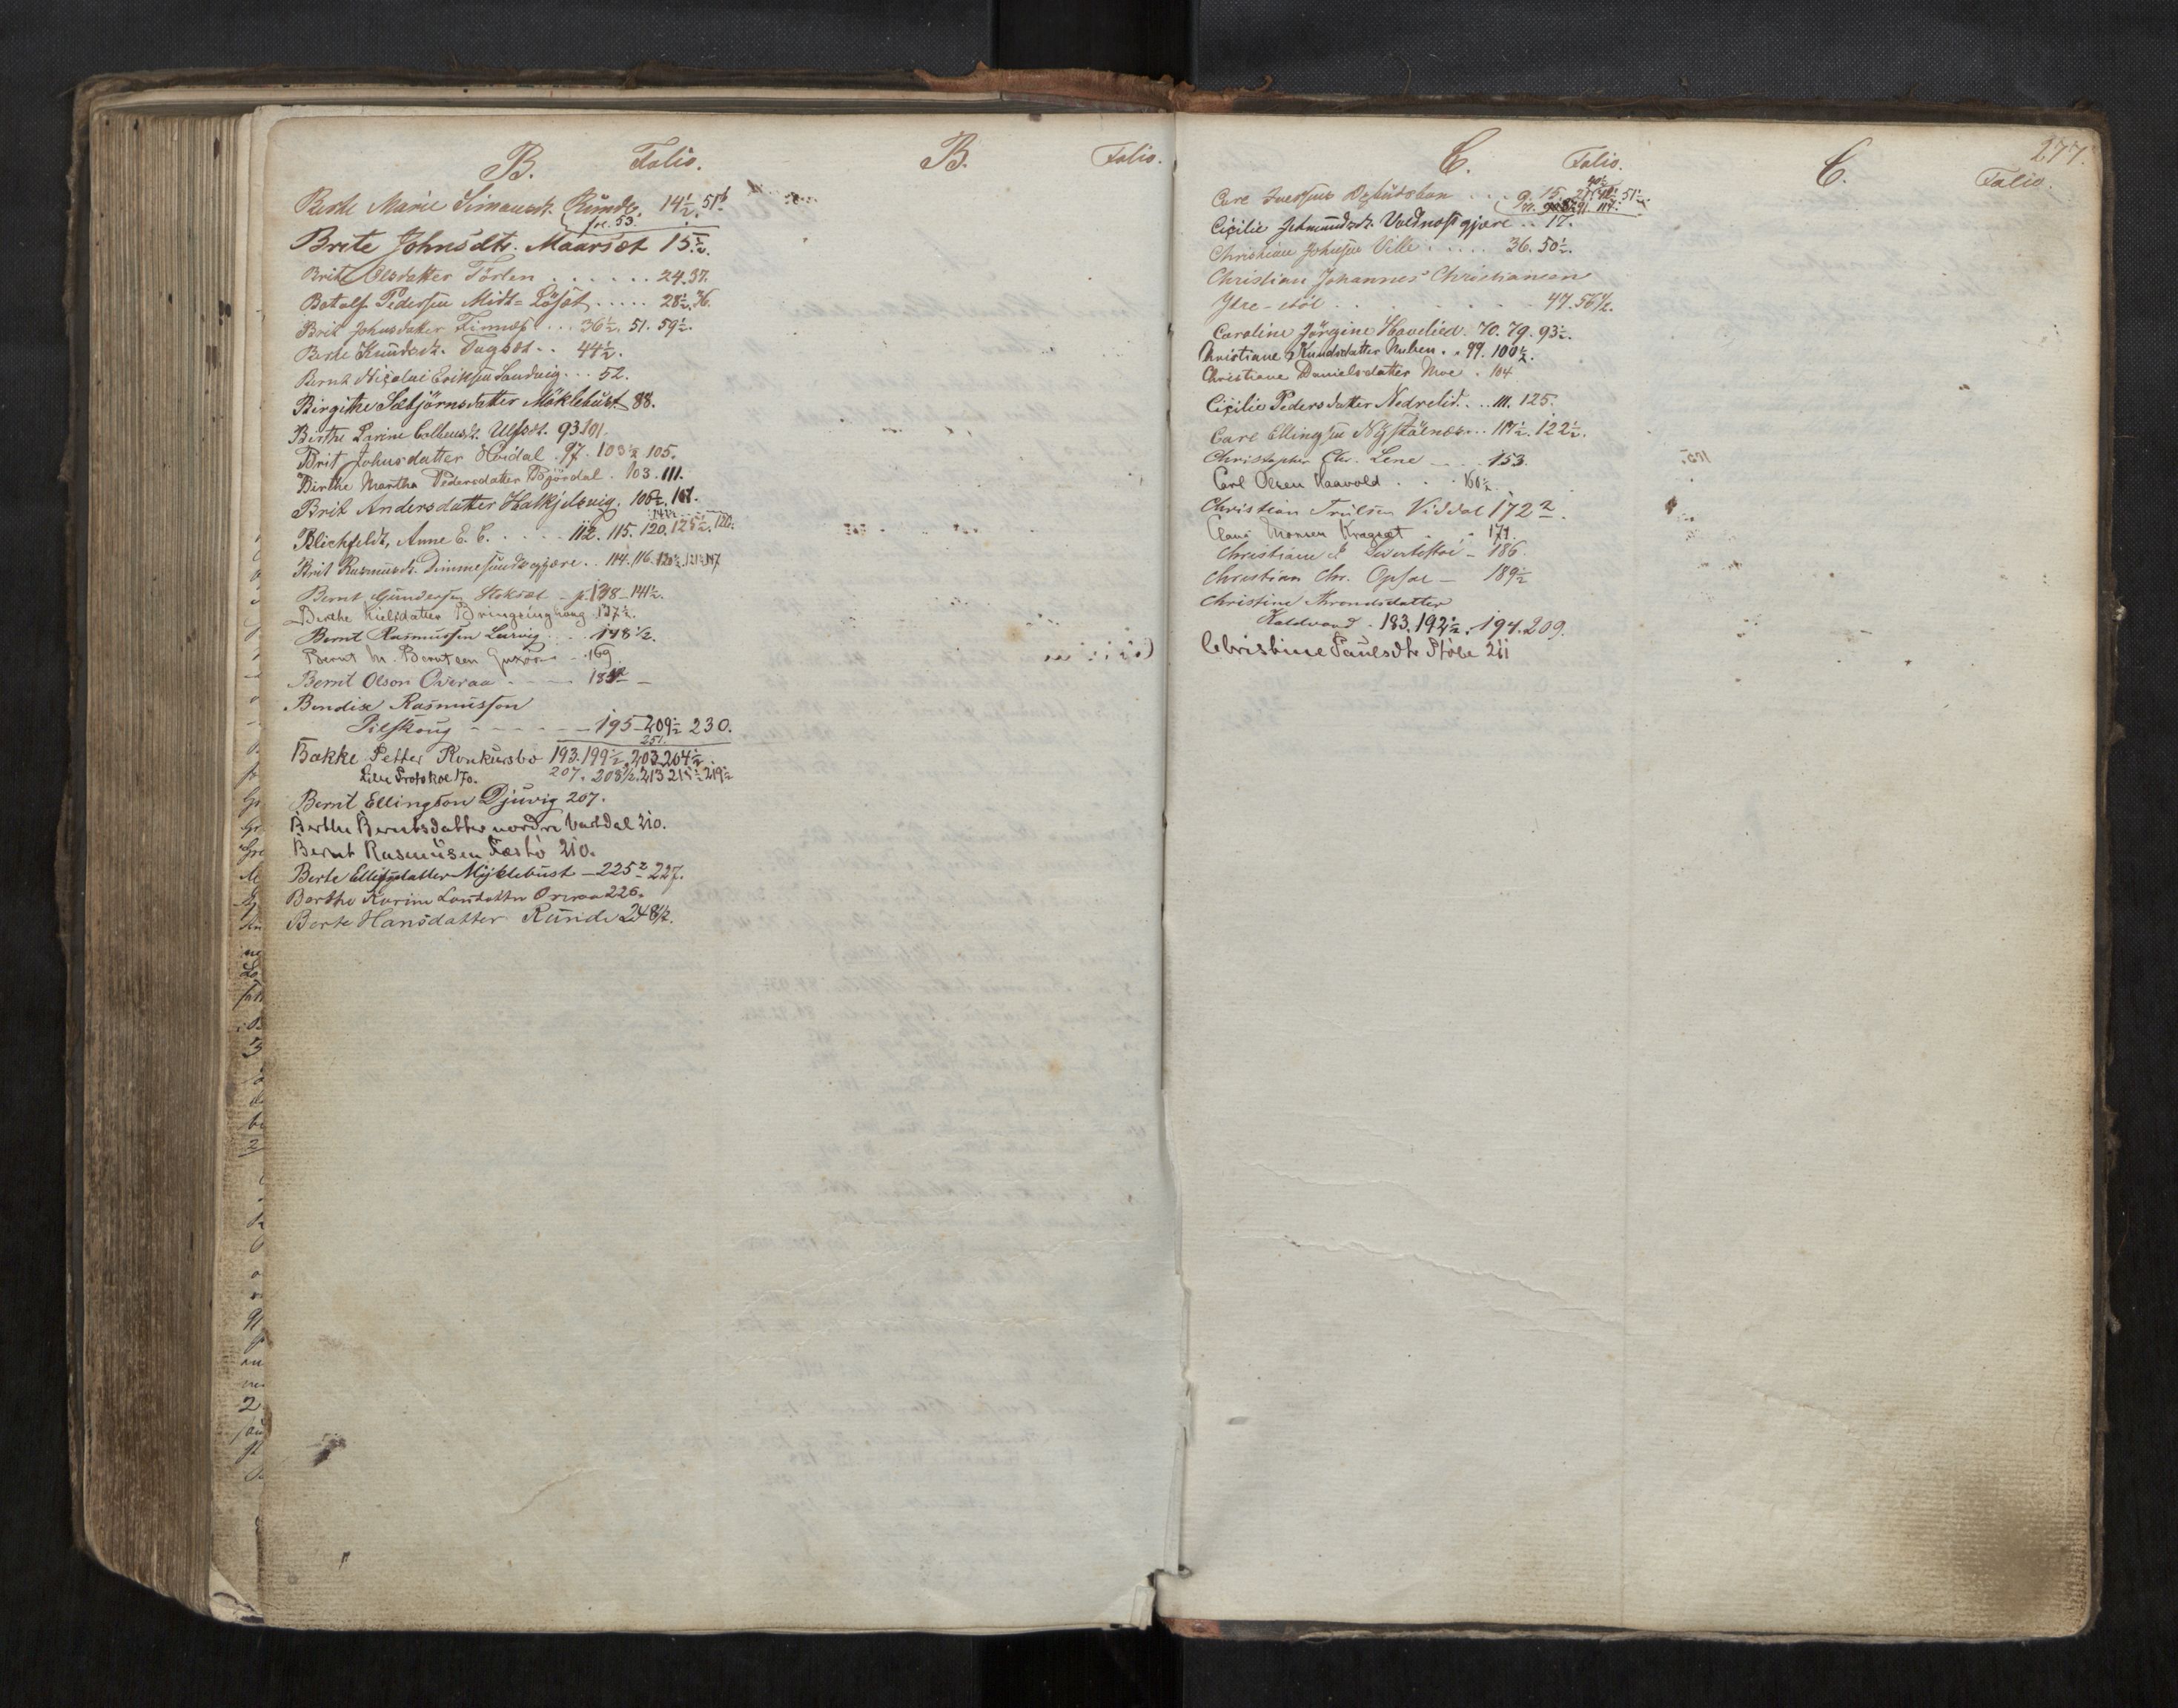 B. Folio.
Berte Marie Simonsdt. Runde. 14½. 51½
fr. 53.
Brete Johnsdtr. Maarsæt 15½.
Brite Olsdatter Törlen . . . . . . 24. 37.
Botolf Pedersen Midt-Löset . . . . . 28½. 36.
Brit Johnsdatter Finnæs . . . 36½. 51. 59½.
Berte Knudsdt. Fugset . . 44½.
Bernt Nicolai Eriksen Sandvig . . . 52.
Birgithe Sæbjörnsdatter Möklebust 88.
Birthe Larine Colbensdt. Ulfset. 93. 101.
Brit Johnsdatter Hovdal . 97. 103½ 105.
Birthe Martha Pedersdatter Björdal . 103. 111.
Brit Andersdatter Hatkjelsvig. 106½. 107.
Blichfeldt, Anne E. C. . . . . . 112. 115. 120. 125½. 120.
Brit Rasmusdt. Dimmesundsgjære . . 114. 116. 120½. 121½. 147
Bernt Gundersen Stokset - p. 138 - 141½.
Berthe Nielsdatter Bringsinghoug 137½.
Bernt Rasmussen Larvig . . . 148½.
Bernt M. Berntsen - 169
Bernt Olson Overaa - - - -
Bendix Rasmusson
Pilskoug - - - - - - 195 - 209½ 230.
251.
Bakke Petter Konkursbo 193. 199½. 203. 204½.
Lille Protokol 170. 207. 208½. 213 215½ 219½
Bernt Ellingson Djuvig 207.
Berthe Berntsdatter nordre Vartdal 210.
Bernt Rasmusen Festö 210.
Berte Ellingsdatter Myklebust - 225½ 227.
Berthe Karine Larsdatter Overaa 226.
Berte Hansdatter Runde 248½.
B. Folio.
C. Folio.
Carl . . . 9. 15. 27½. 51½.
91. 117.
Cicilie Jetmundsdt. Voldnæsgjære . . 17.
Christian Johnsen Ville . . . . . 36. 50½.
Christian Johannes Christiansen
Ytre-stöl . . . . . . . . 47. 56½.
Caroline Jörgine Havelied. 70. 79. 93½.
Christiane Knudsdatter Nulven . . 99. 100½.
Christiane Danielsdatter Moe . 104.
Cicilie Pedersdatter Nedrelid . . . 111. 125.
Carl Ellingsen Nystölnæs . . . 117½. 122½.
Christopher Chr. Lene - - - 153.
Carl Olsen Haavold . . . 160½.
Christian Trulsen Viddal 172½.
Claus Monsen Kragset . . 171.
Christiane - 186.
Christian Chr. Opsal - 189½
Christine Throndsdatter
Kaldvand . 183. 192½. 194. 209.
Christine Paulsdtr Stöle 211
C. Folio.
277.